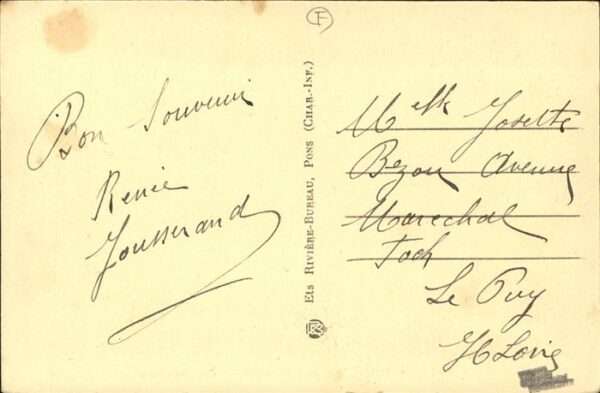 F
Bon Souvenir
Renée
Jousserand
Ets Rivière-Bureau, Pons (Char.-Inf.)
Melle Josette
Bezon Avenue
Marechal
Foch
Le Puy
Hte Loire